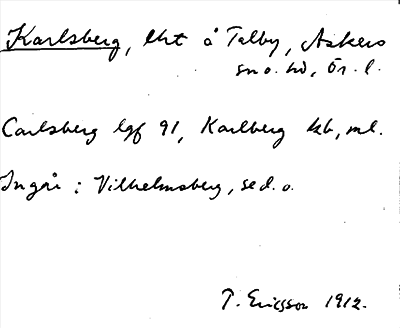 Karlsberg, lht å Talby, Askers
sn o. hd, Ör. l.
Carlsberg lgf 91, Karlberg kb, ml.
Ingår i Vilhelmsberg, se d. o.
T. Ericsson 1912.